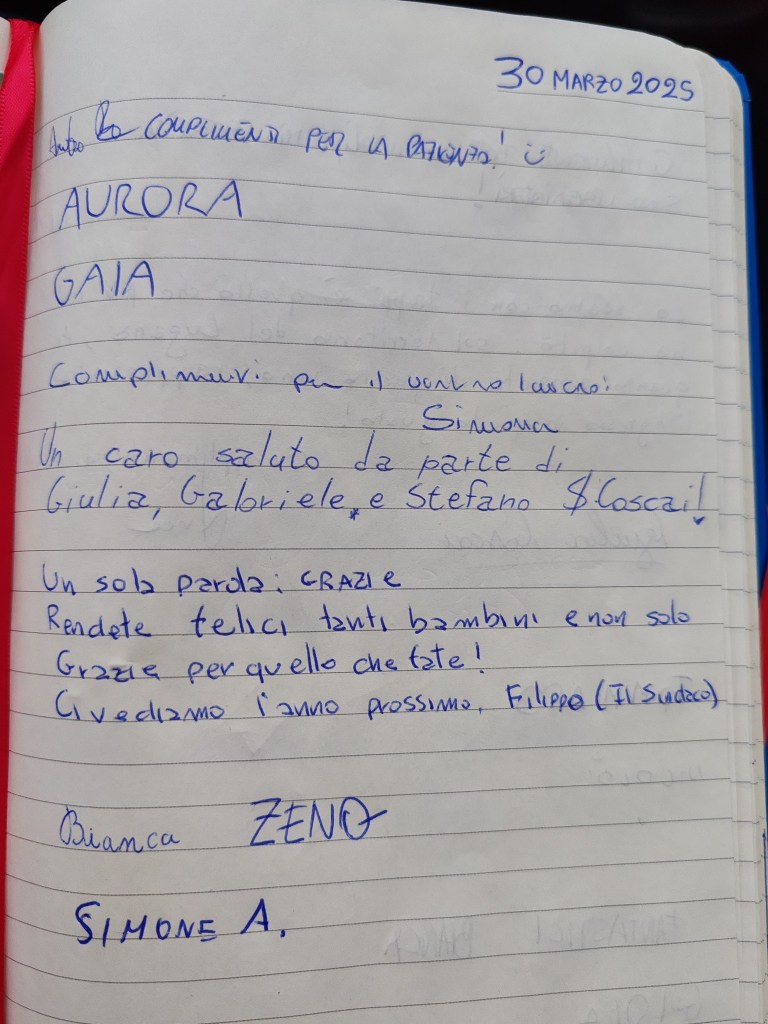 30 MARZO 2025
COMPLIMENTI PER LA PAZIENZA!
AURORA
GAIA
Complimenti per il vostro lavoro!
Simona
Un caro saluto da parte di
Giulia, Gabriele e Stefano Coscai!
Un sola parola: GRAZIE
Rendete felici tanti bambini e non solo
Grazie per quello che fate!
Ci vediamo l'anno prossimo, Filippo (Il Sindaco)
Bianca ZENO
SIMONE A.